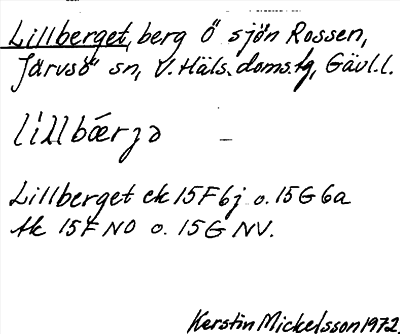 Lillberget, berg Ö sjön Rossen,
Järvsö sn, V. Häls. doms.tg, Gävl.l.
lillbǽrʒə –
Lillberget ek 15F6j o. 15G6a
tk 15F NO o. 15G NV.
Kerstin Mickelsson 1972.